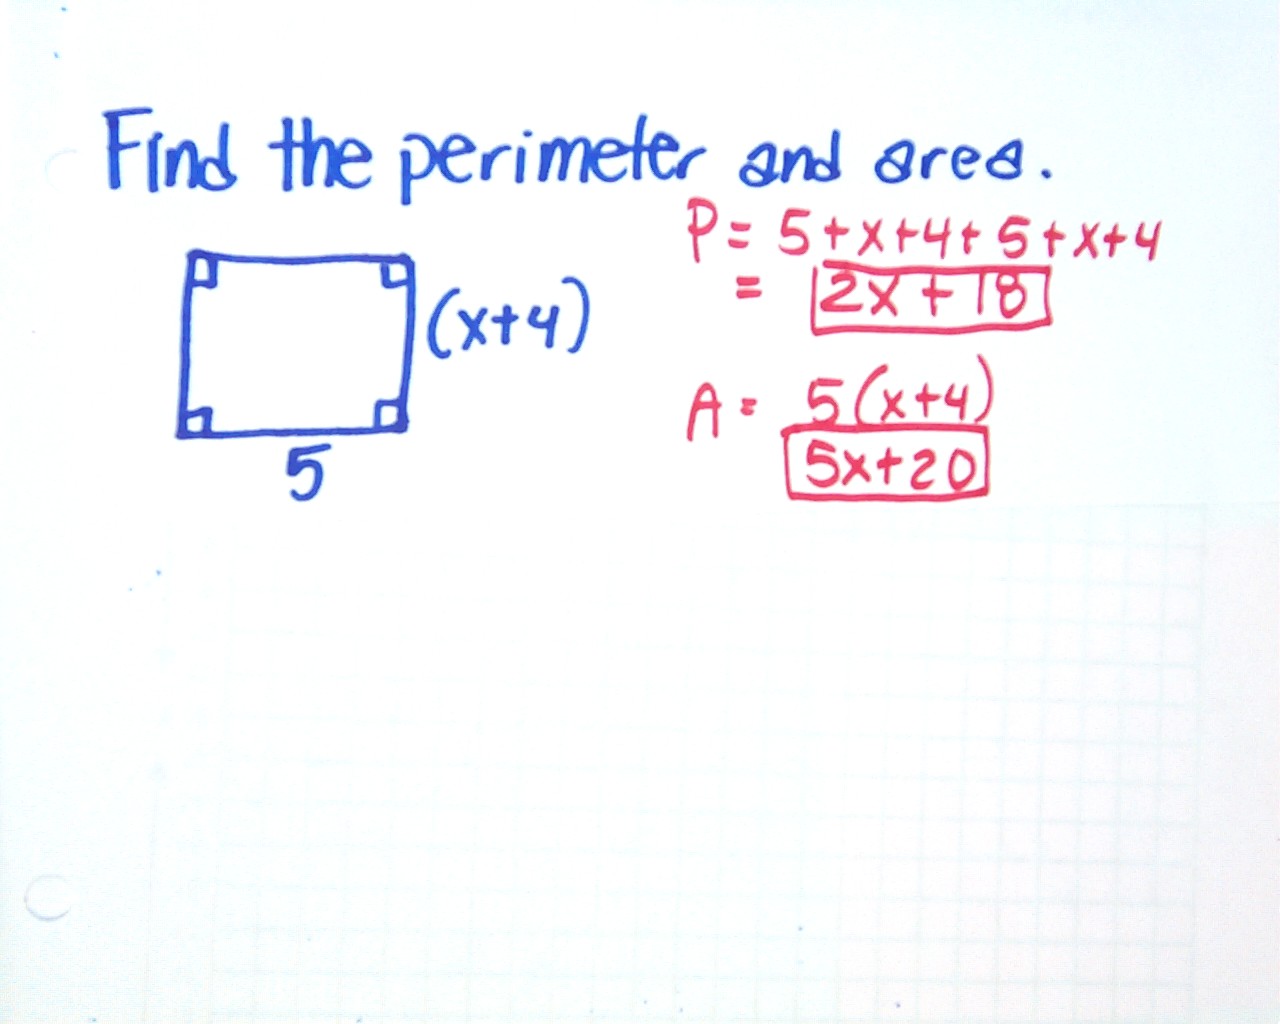 Find the perimeter and area.
(x+4)
5
P = 5+x+4+5+x+4
= 2x+18
A = 5(x+4)
5x+20